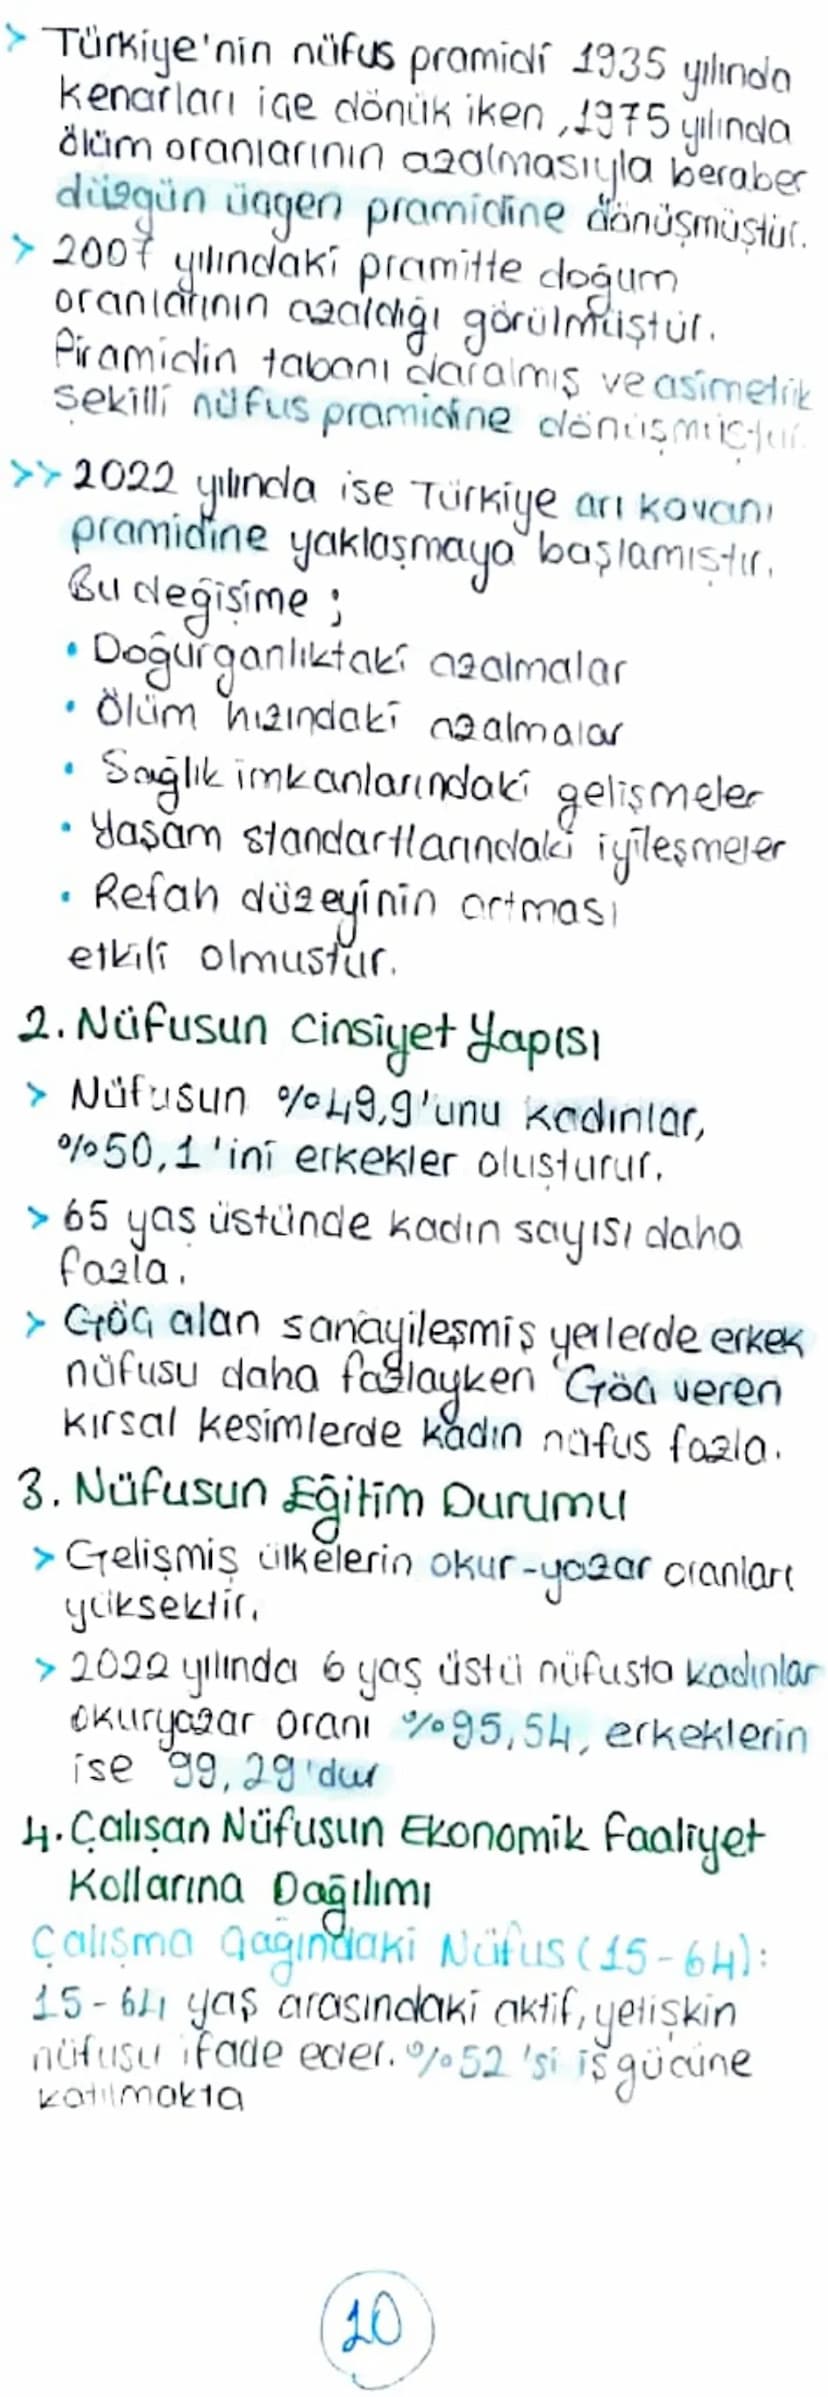 > Türkiye'nin nüfus pramidi 1935 yılında
kenarları içe dönük iken, 1975 yılında
ölüm oranlarının azalmasıyla beraber
düzgün üçgen pramidine dönüşmüştür.
> 2007 yılındaki pramitte doğum
oranlarının azaldığı görülmüştür.
Piramidin tabanı daralmış ve asimetrik
şekilli nüfus pramidine dönüşmüştür.
>> 2022 yılında ise Türkiye arı kovanı
pramidine yaklaşmaya başlamıştır.
Bu değişime ;
• Doğurganlıktaki azalmalar
• Ölüm hızındaki azalmalar
• Sağlık imkanlarındaki gelişmeler
• Yaşam standartlarındaki iyileşmeler
• Refah düzeyinin artması
etkili olmuştur.
2. Nüfusun Cinsiyet Yapısı
> Nüfusun %49,9'unu kadınlar,
%50,1'ini erkekler oluşturur.
> 65 yaş üstünde kadın sayısı daha
fazla.
> Göç alan sanayileşmiş yerlerde erkek
nüfusu daha fazlayken Göç veren
kırsal kesimlerde kadın nüfus fazla.
3. Nüfusun Eğitim Durumu
> Gelişmiş ülkelerin okur-yazar oranları
yüksektir.
> 2022 yılında 6 yaş üstü nüfusta kadınlar
okuryazar oranı %95,54, erkeklerin
ise 99,29'dur
4. Çalışan Nüfusun Ekonomik Faaliyet
Kollarına Dağılımı
Çalışma Çağındaki Nüfus (15-64):
15-64 yaş arasındaki aktif, yetişkin
nüfusu ifade eder. %52'si iş gücüne
katılmakta
10